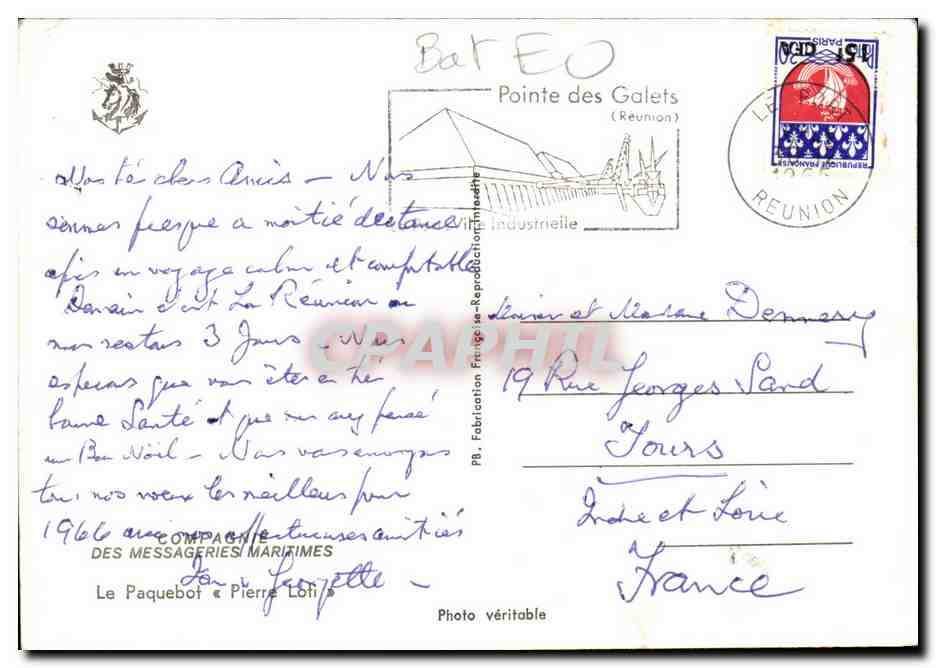 Bat EO
Pointe des Galets
(Réunion)
Ville Industrielle
15F CFA
PARIS
0,30
REPUBLIQUE FRANÇAISE
LE PORT
REUNION
Nos très chers Amis – Nous
sommes presque à moitié distance
après un voyage calme et confortable
Demain c'est La Réunion où
nous restons 3 Jours – Nous
espérons que vous êtes en très
bonne Santé et que vous avez passé
un Bon Noël – Nous vous envoyons
tous nos voeux les meilleurs pour
1966 avec nos affectueuses amitiés
Georgette –
COMPAGNIE
DES MESSAGERIES MARITIMES
Le Paquebot « Pierre Loti »
PB. Fabrication Française-Reproduction Interdite
Photo véritable
CPAPHIL
Monsieur et Madame Dennery
19 Rue Georges Sand
Tours
Indre et Loire
France